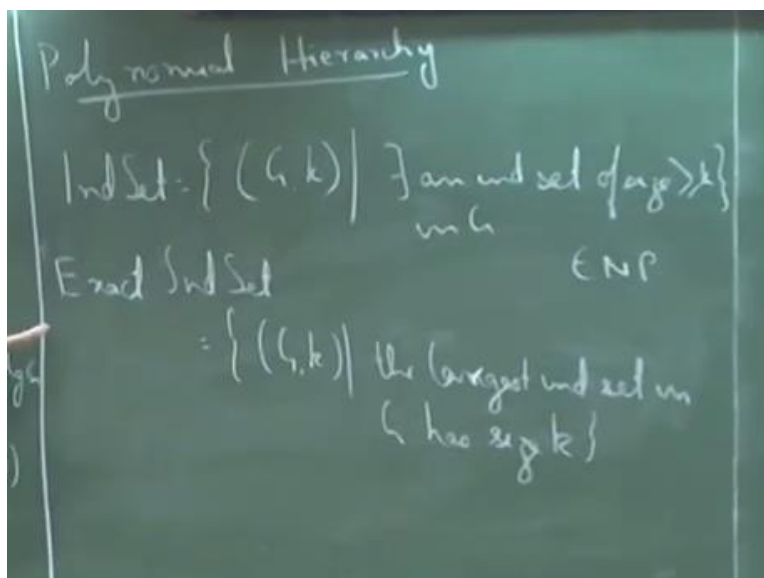 Polynomial Hierarchy
IndSet = { (G,k) | ∃ an ind set of size ≥ k}
in G
∈ NP
Exact Ind Set
= { (G,k) | the largest ind set in
G has size k}
)